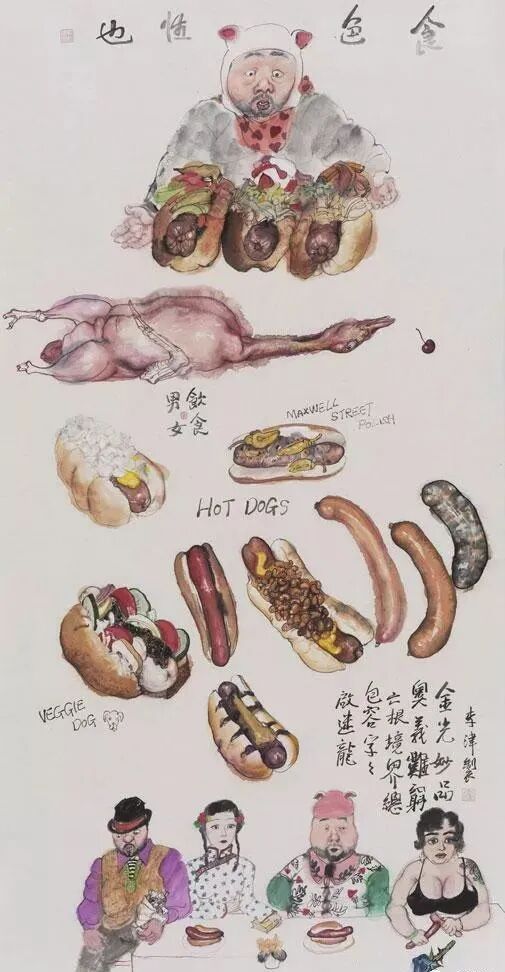 食色性也
飲食
男女
MAXWELL
STREET
POLISH
HOT DOGS
VEGGIE
DOG
金光妙品
奧義難窮
六根境界總
包容字々
啟迷龍
李津製